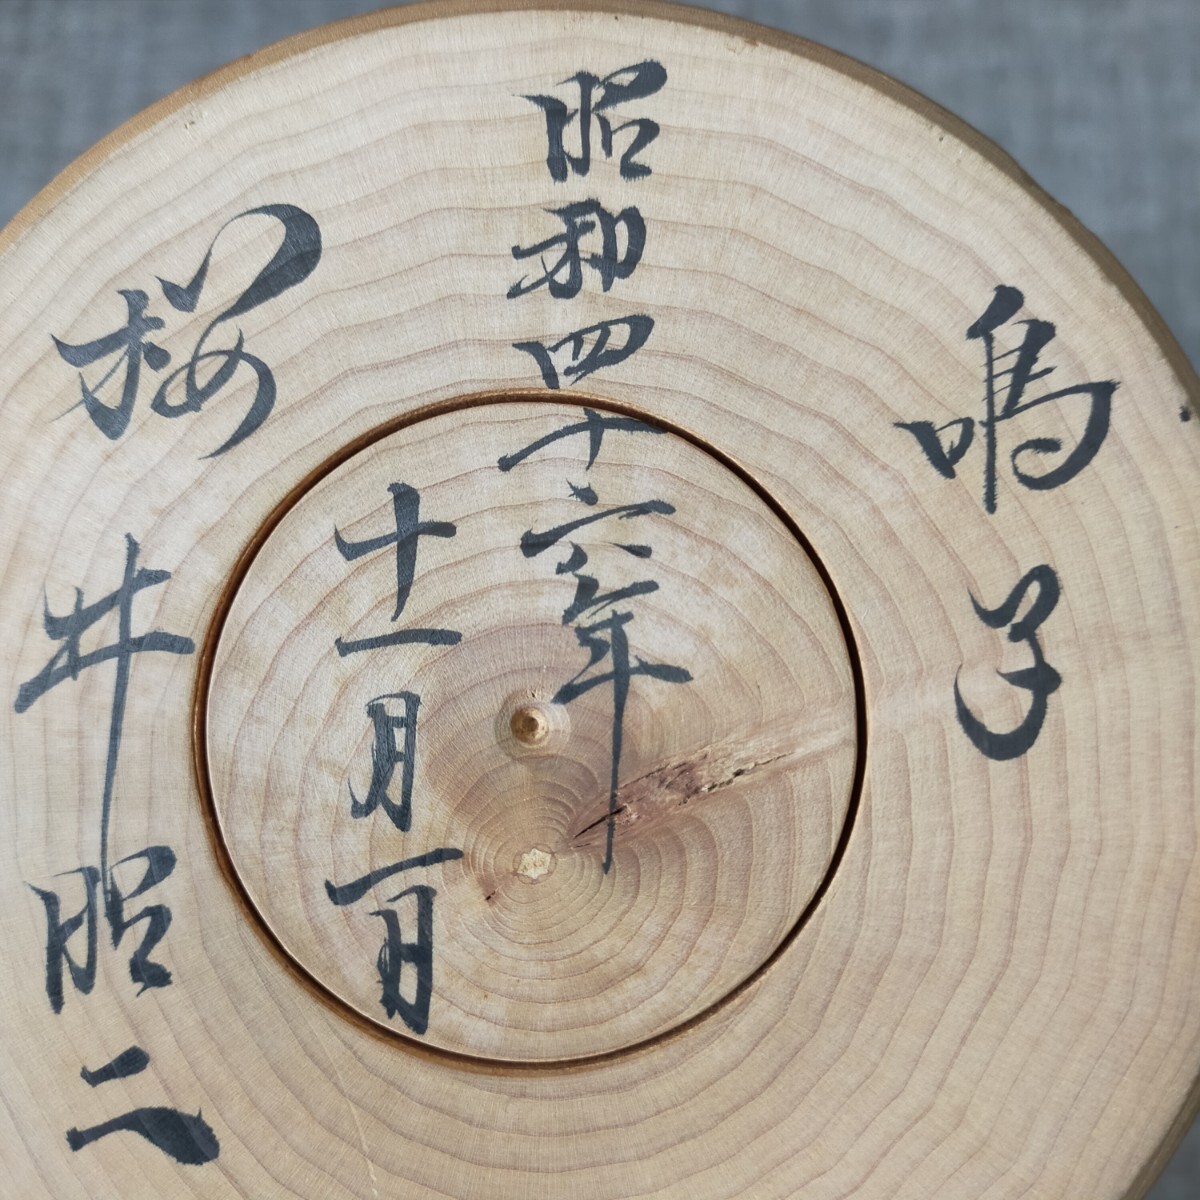 鳴子
昭和四十六年
十一月一日
桜井昭二